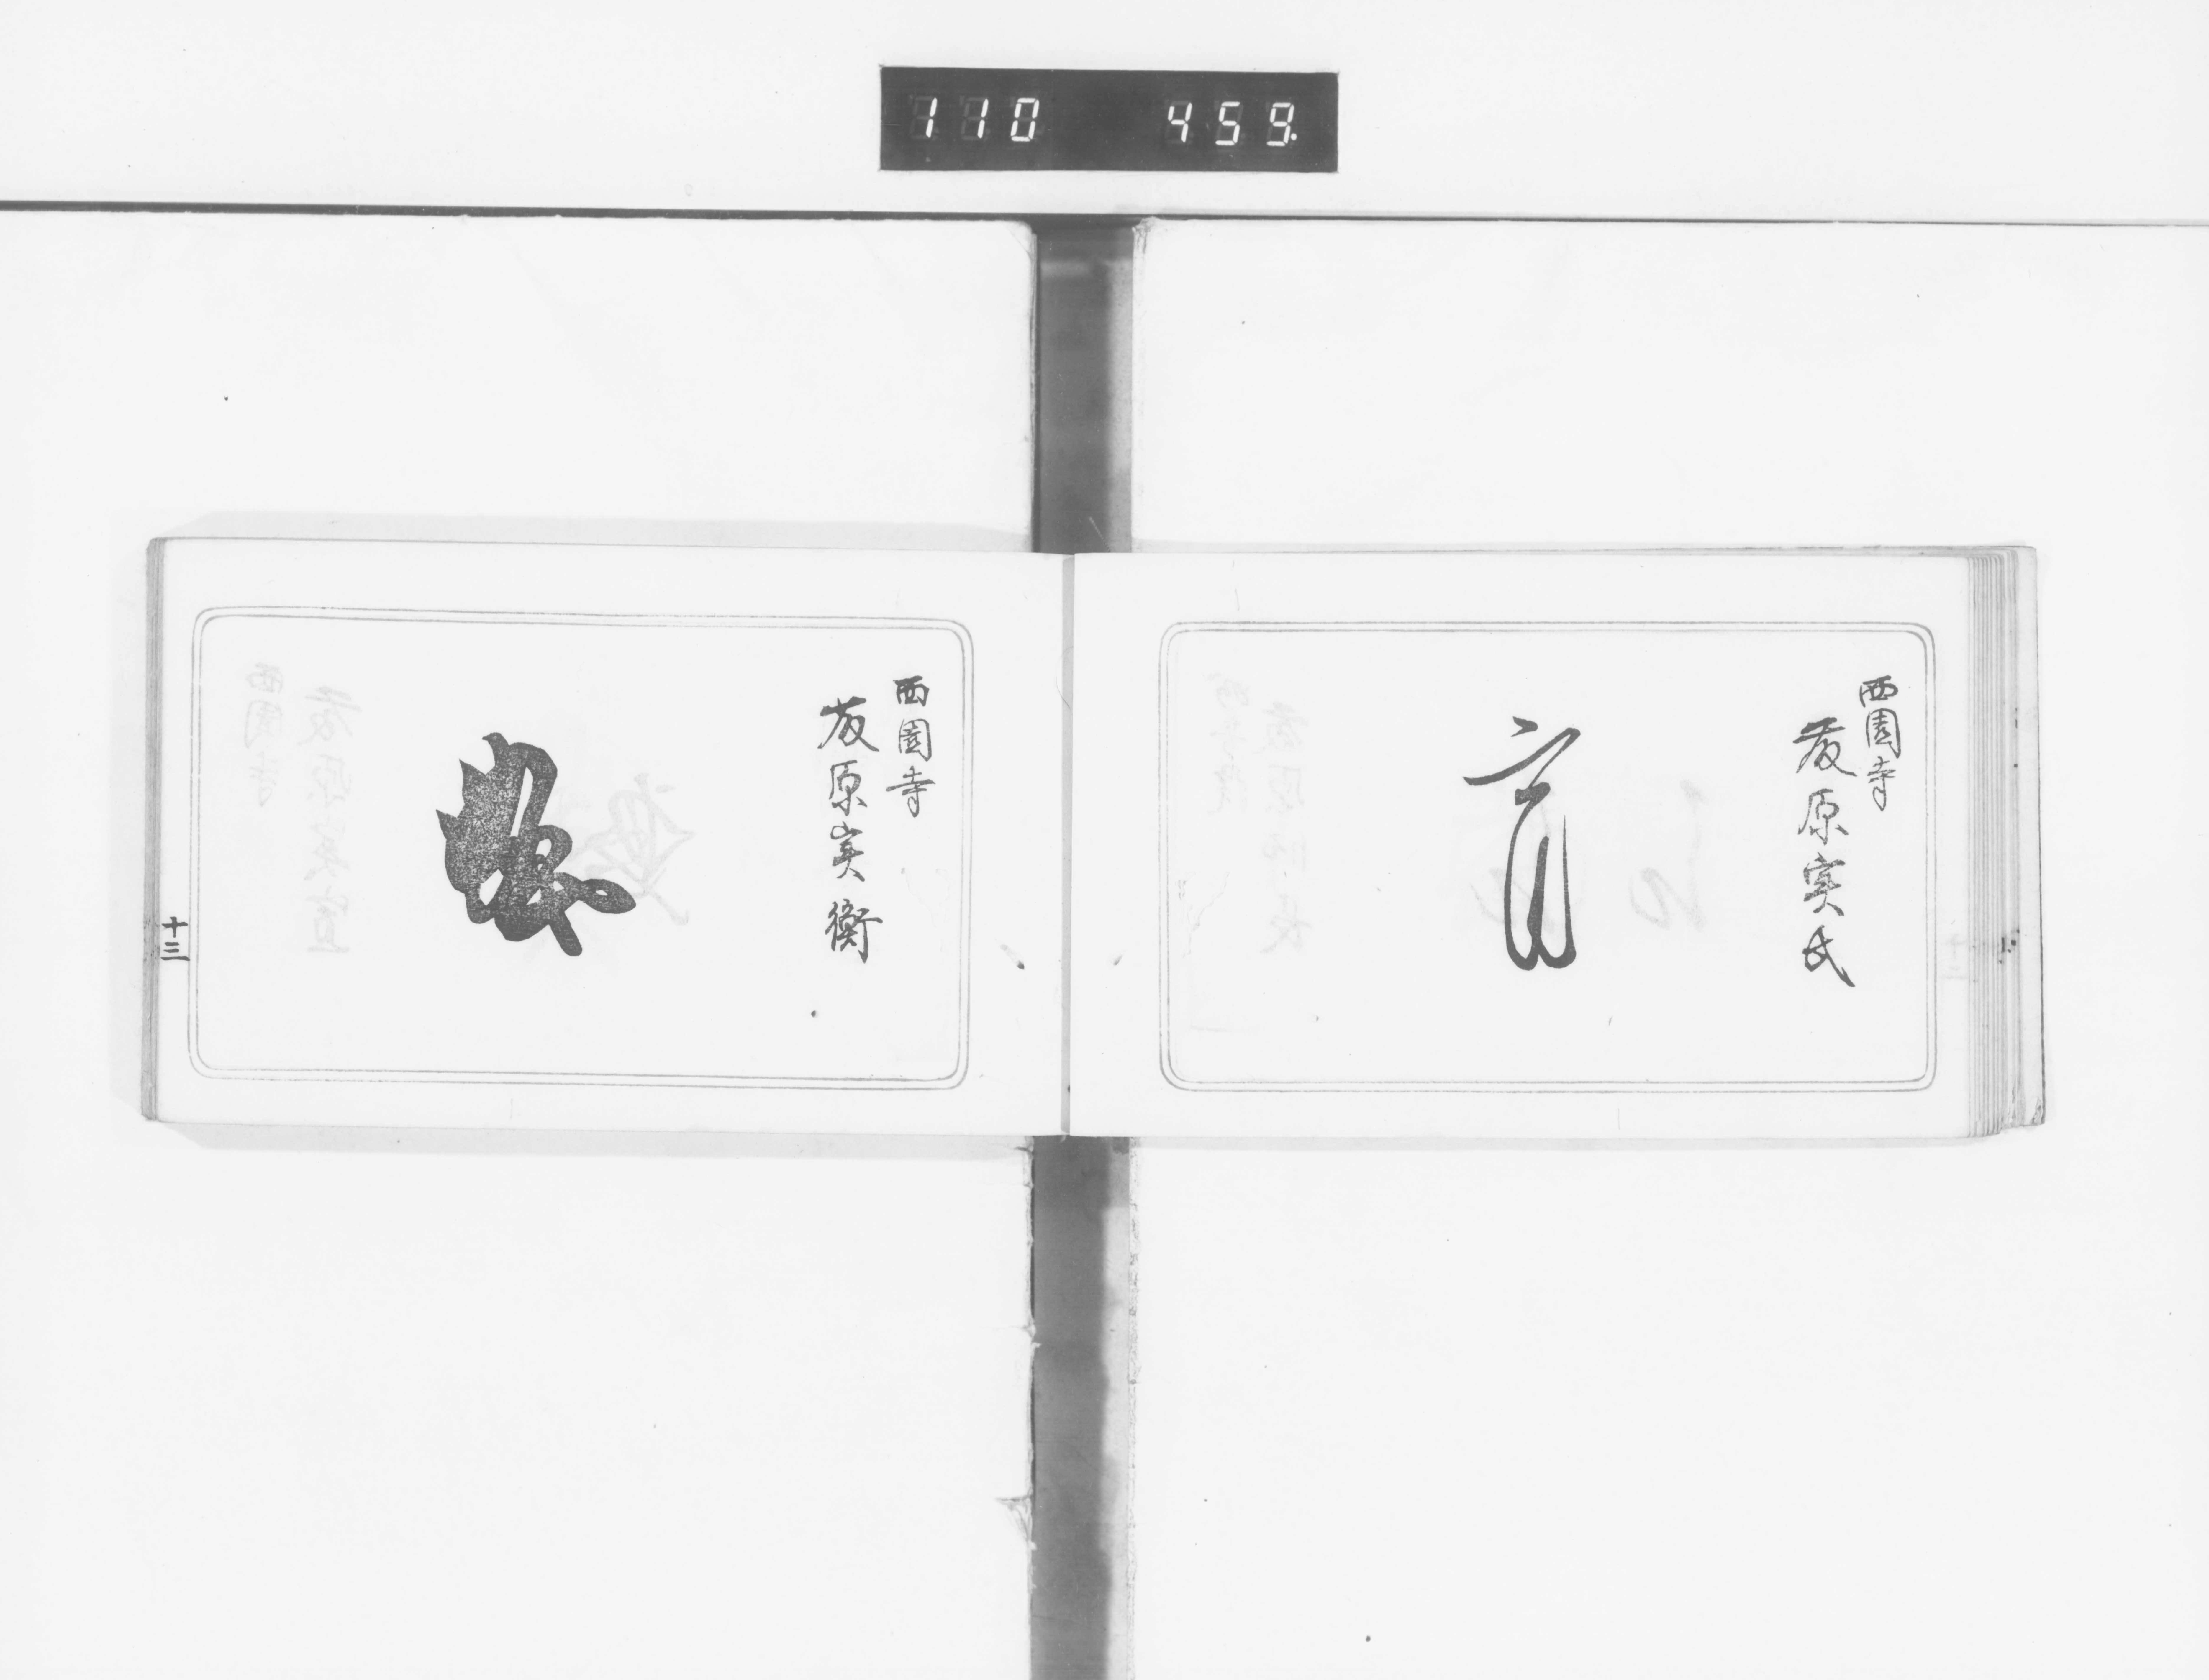 110 459.
西園寺
藤原実氏
西園寺
藤原実衡
十三